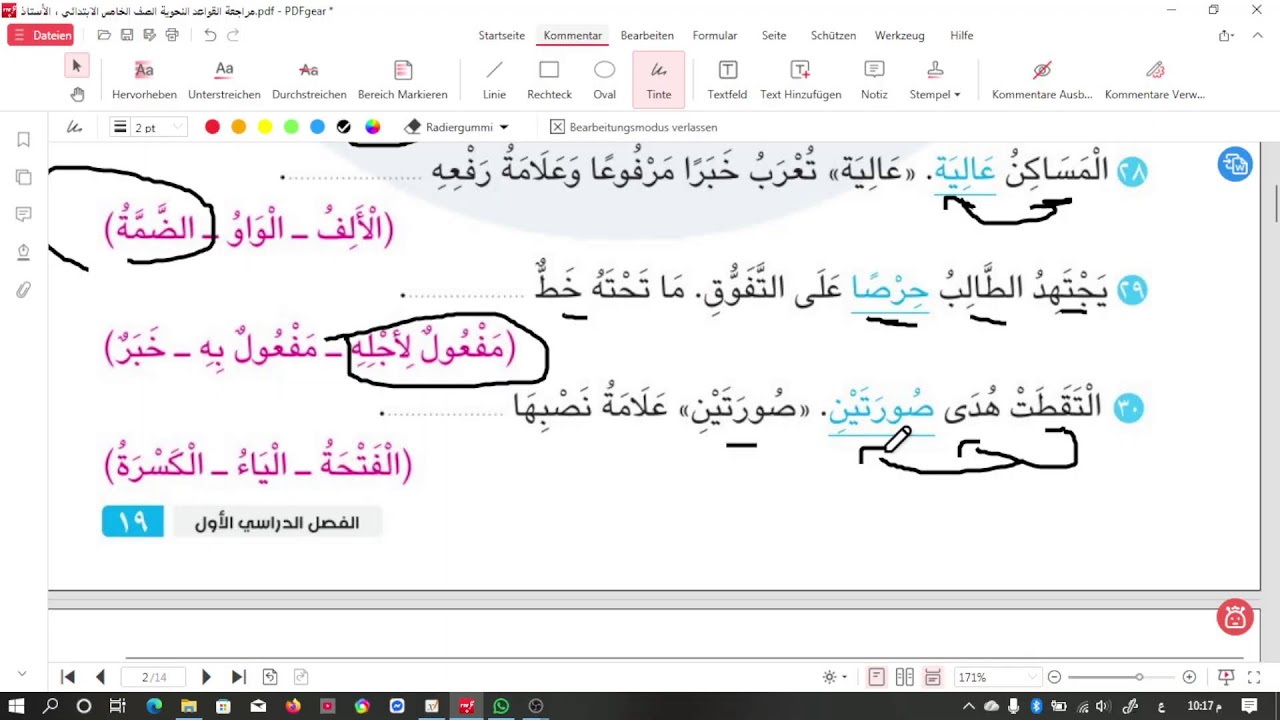 مراجعة القواعد النحوية الصف الخامس الابتدائي ، الأستاذ.pdf - PDFgear *
Dateien Startseite Kommentar Bearbeiten Formular Seite Schützen Werkzeug Hilfe
Hervorheben Unterstreichen Durchstreichen Bereich Markieren Linie Rechteck Oval Tinte Textfeld Text Hinzufügen Notiz Stempel Kommentare Ausb... Kommentare Verw...
2 pt Radiergummi Bearbeitungsmodus verlassen
٢٨ الْمَسَاكِنُ عَالِيَة. «عَالِيَة» تُعْرَبُ خَبَرًا مَرْفُوعًا وَعَلَامَةُ رَفْعِهِ ....................
(الْأَلِفُ ــ الْوَاوُ ــ الضَّمَّةُ)
٢٩ يَجْتَهِدُ الطَّالِبُ حِرْصًا عَلَى التَّفَوُّقِ. مَا تَحْتَهُ خَطٌّ ....................
(مَفْعُولٌ لِأَجْلِهِ ــ مَفْعُولٌ بِهِ ــ خَبَرٌ)
٣٠ الْتَقَطَتْ هُدَى صُورَتَيْنِ. «صُورَتَيْنِ» عَلَامَةُ نَصْبِهَا ....................
(الْفَتْحَةُ ــ الْيَاءُ ــ الْكَسْرَةُ)
الفصل الدراسي الأول ١٩
2/14 171%
10:17 م